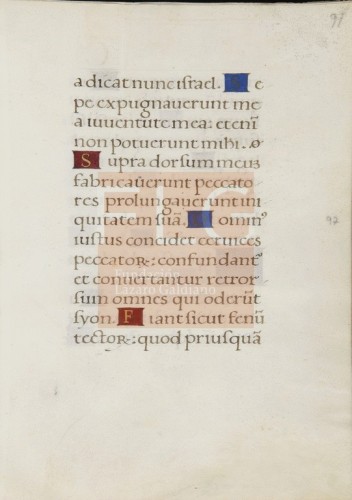 91
a dicat nunc israel. S e
pe expugnauerunt me
a iuuentute mea: eteni̅
non potuerunt mihi.
S upra dorsum meuʒ
fabricaue̅runt peccato
res prolungauerunt ini
quitatem sua̅. D omin⁹
iustus concidet ceruices
peccatoꝝ: confundant᷑
et conuertantur retror
sum omnes qui oderu̅t
syon. F iant sicut fenu̅
tectoꝝ: quod priusqua̅
92
FLG
Fundación
Lázaro Galdiano